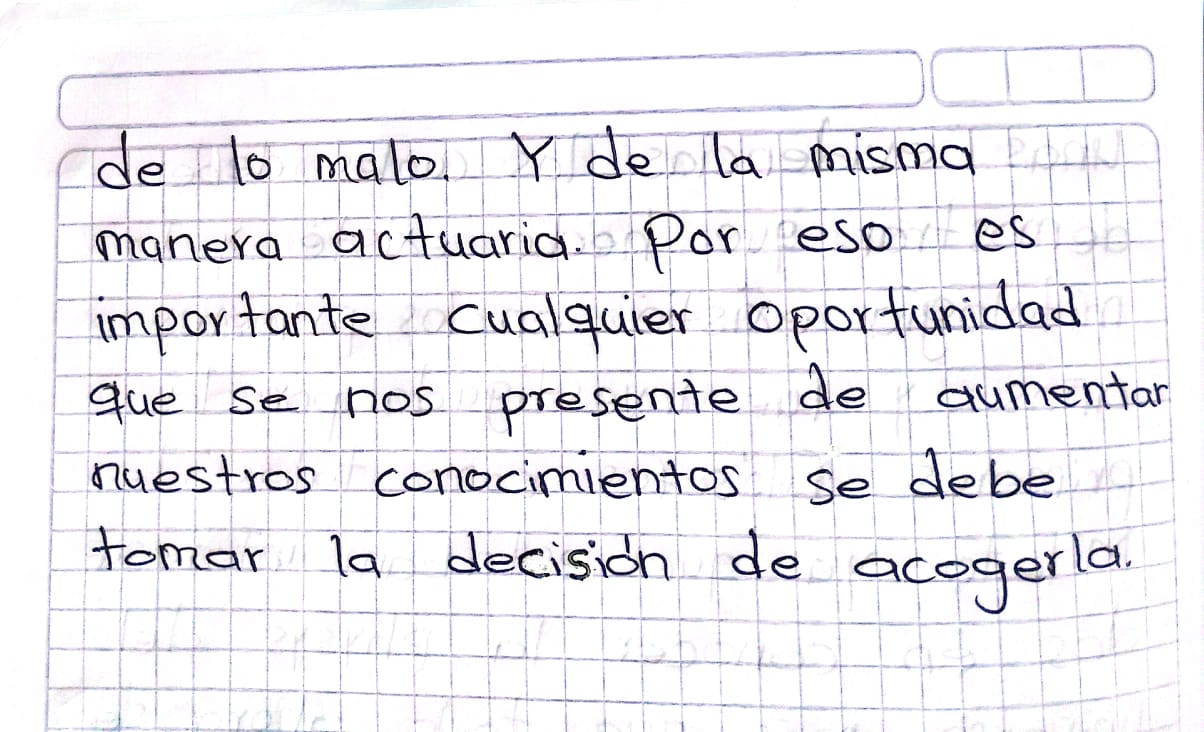 de lo malo. Y de la misma
manera actuaria. Por eso es
importante cualquier oportunidad
que se nos presente de aumentar
nuestros conocimientos se debe
tomar la decisión de acogerla.